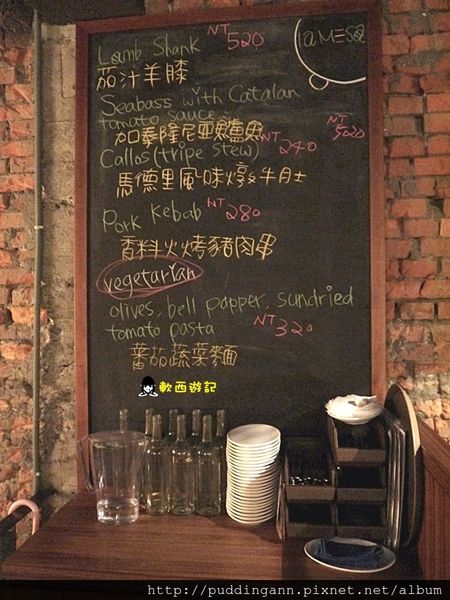 Lamb Shank NT 520
茄汁羊膝
laMESA
Seabass with Catalan
tomato sauce NT 520
加泰隆尼亞鱸魚
Callos (tripe stew) NT 240
馬德里風味燉牛月士
Pork Kebab NT 280
香料火烤豬肉串
vegetarian
olives, bell papper, sundried
tomato pasta NT 320
蕃茄蔬菜麵
軟西遊記
http://puddingann.pixnet.net/album